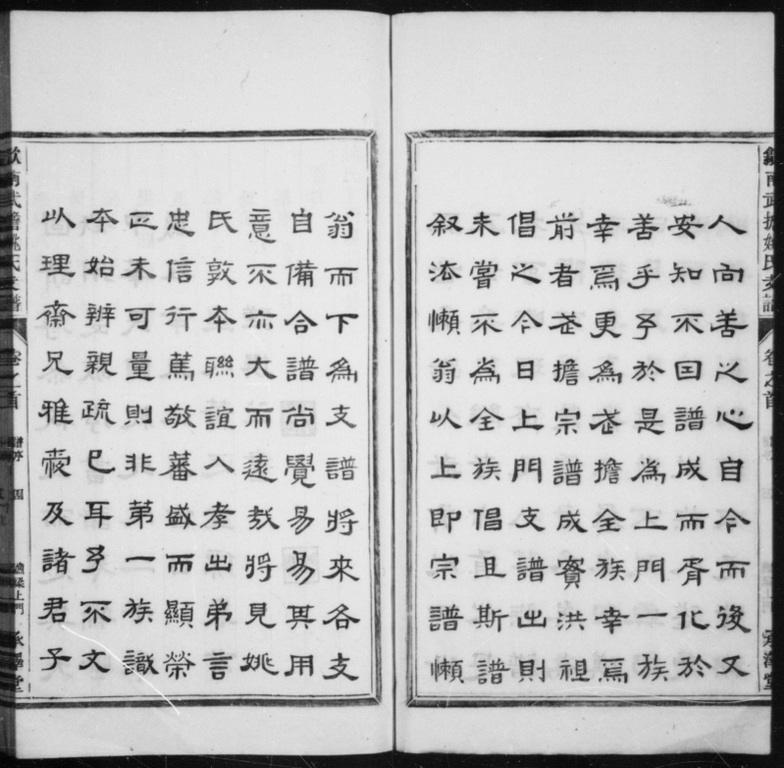 人向善之心自今而後又
安知不因譜成而胥化於
善乎予於是為上門一族
幸焉更為武擔全族幸焉
前者武擔宗譜成賓洪祖
倡之今日上門支譜出則
未嘗不為全族倡且斯譜
叙法懶翁以上即宗譜懶
翁而下為支譜將來各支
自備合譜尚覺易易其用
意不亦大而遠哉將見姚
氏敦本聯誼入孝出弟言
忠信行篤敬蕃盛而顯榮
正未可量則非第一族識
本始辨親疏已耳予不文
以理齋兄雅囑及諸君子
南武擔姚氏支譜
卷之首
承澤堂